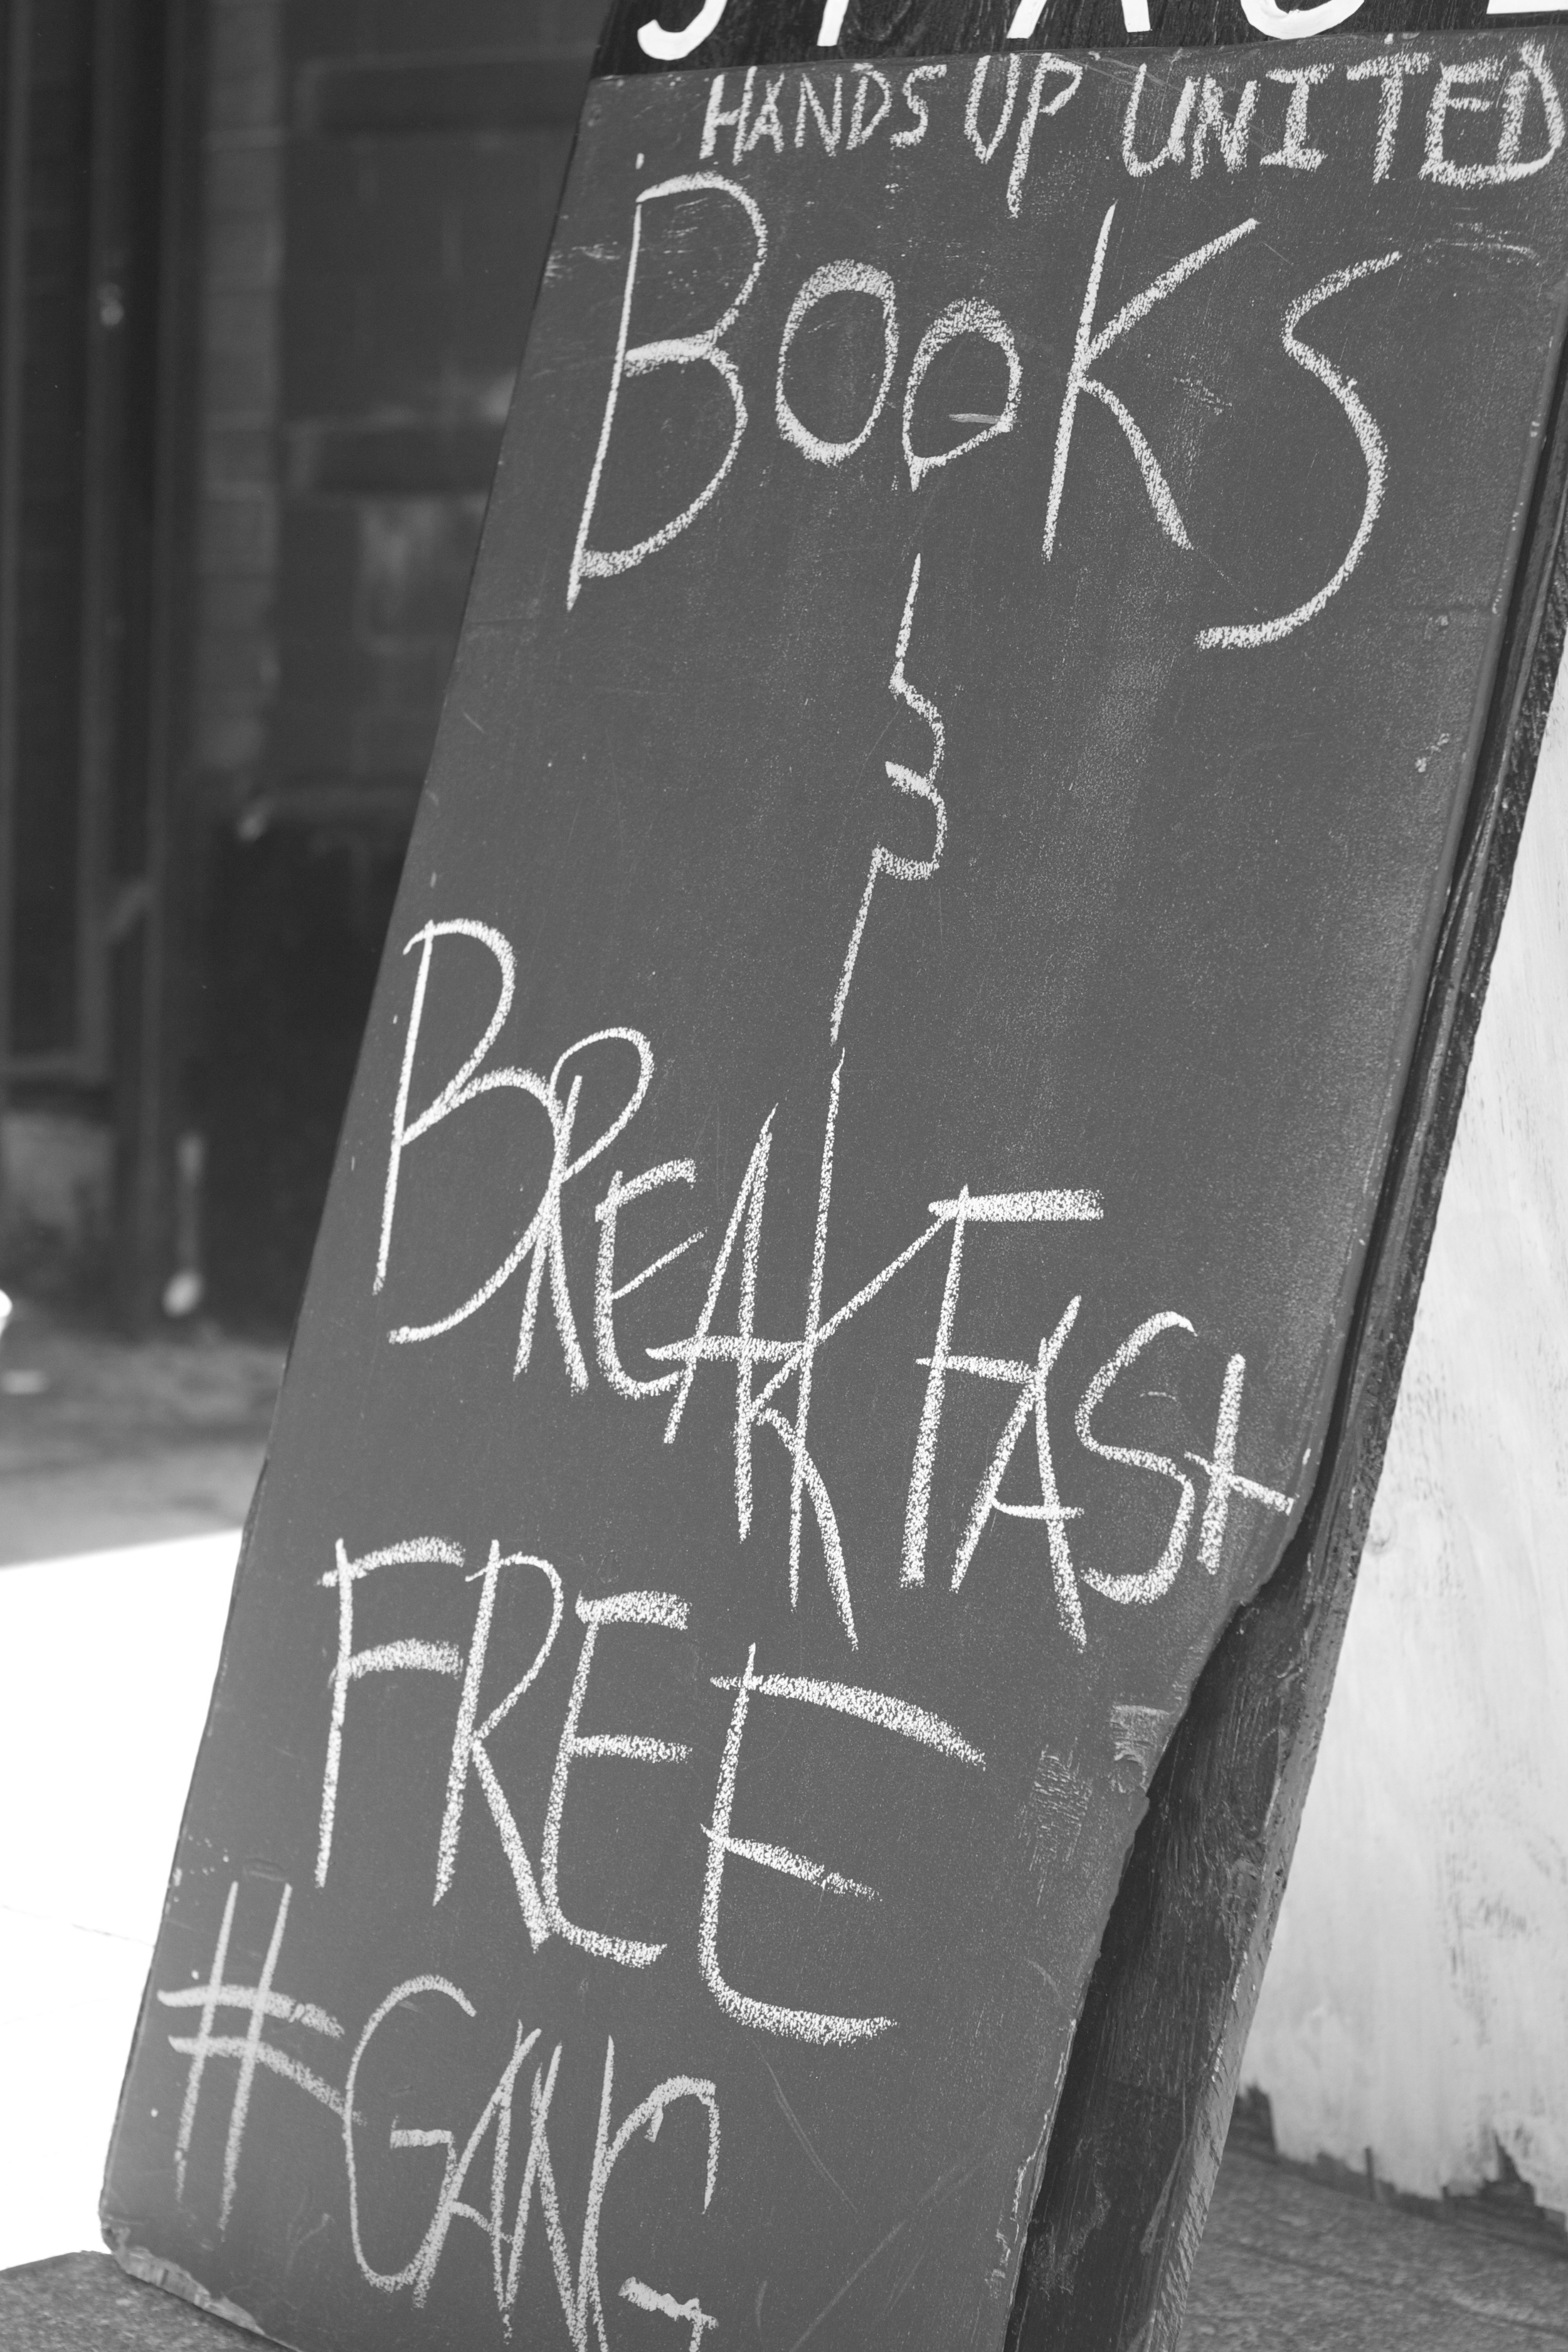 HANDS UP UNITED
BOOKS
&
BREAKFASt
FREE
#GANG